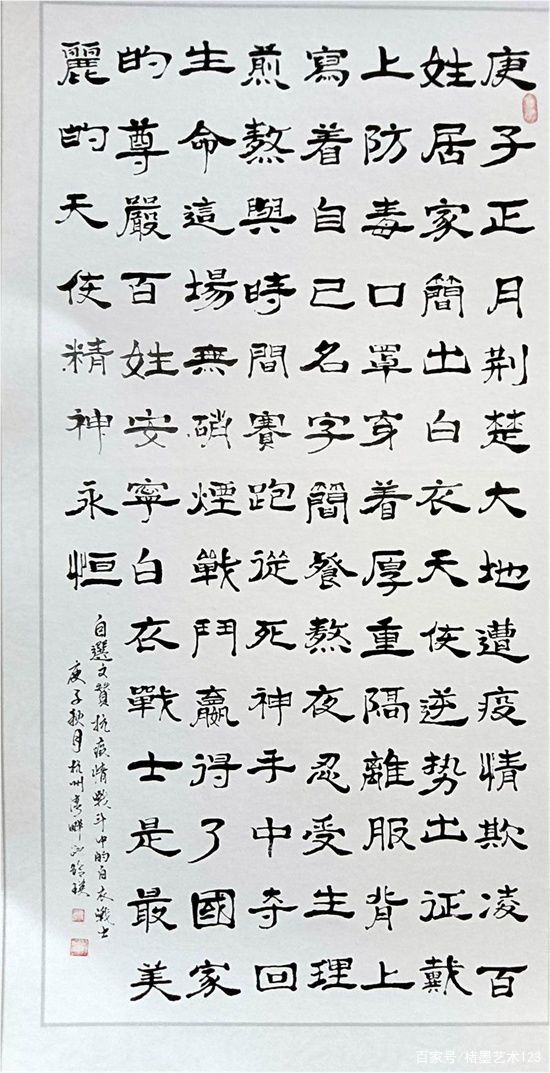 庚子正月荆楚大地遭疫情欺凌百
姓居家簡出白衣天使逆势出征戴
上防毒口罩穿着厚重隔離服背上
寫着自己名字簡餐熬夜忍受生理
煎熬與時間賽跑從死神手中夺回
生命這場無硝煙戰鬥贏得了國家
的尊嚴百姓安寧白衣戰士是最美
麗的天使精神永恒
自選文贊抗疫情戰斗中的白衣戰士
庚子秋月杭州湾畔
百家号/楮墨艺术123